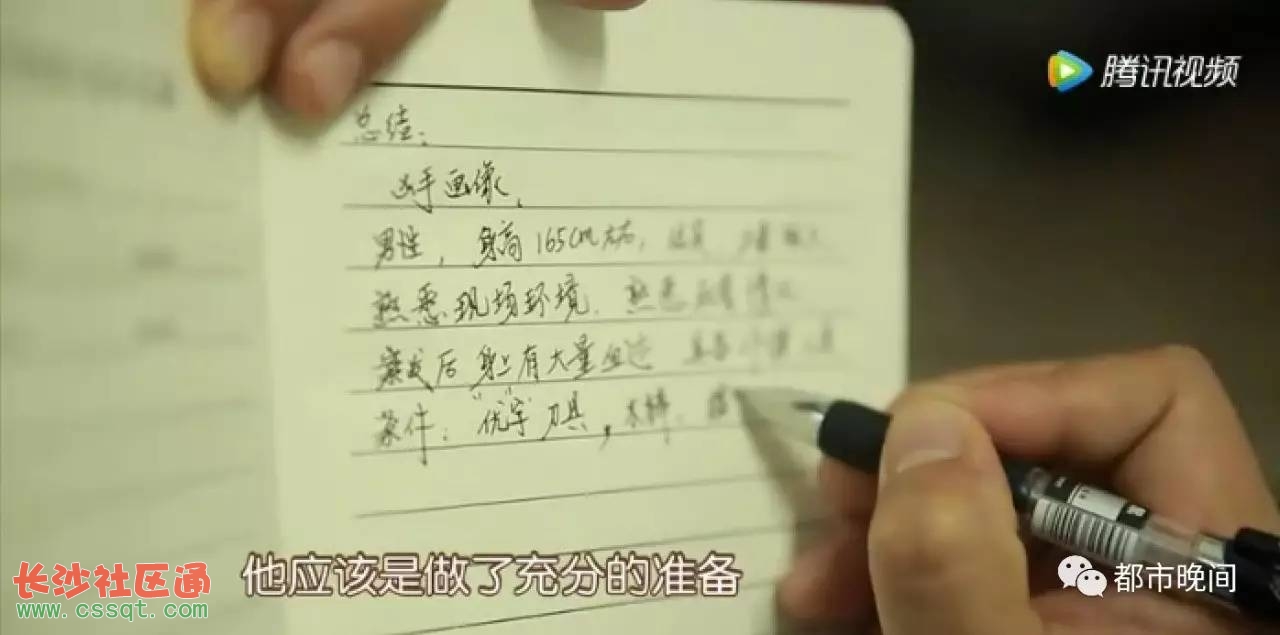 腾讯视频
总结：
凶手画像、
男性，身高165cm左右，
熟悉现场环境. 熟悉
案发后身上有大量血迹
条件："优字"刀具，木棒.
他应该是做了充分的准备
长沙社区通
www.cssqt.com
都市晚间